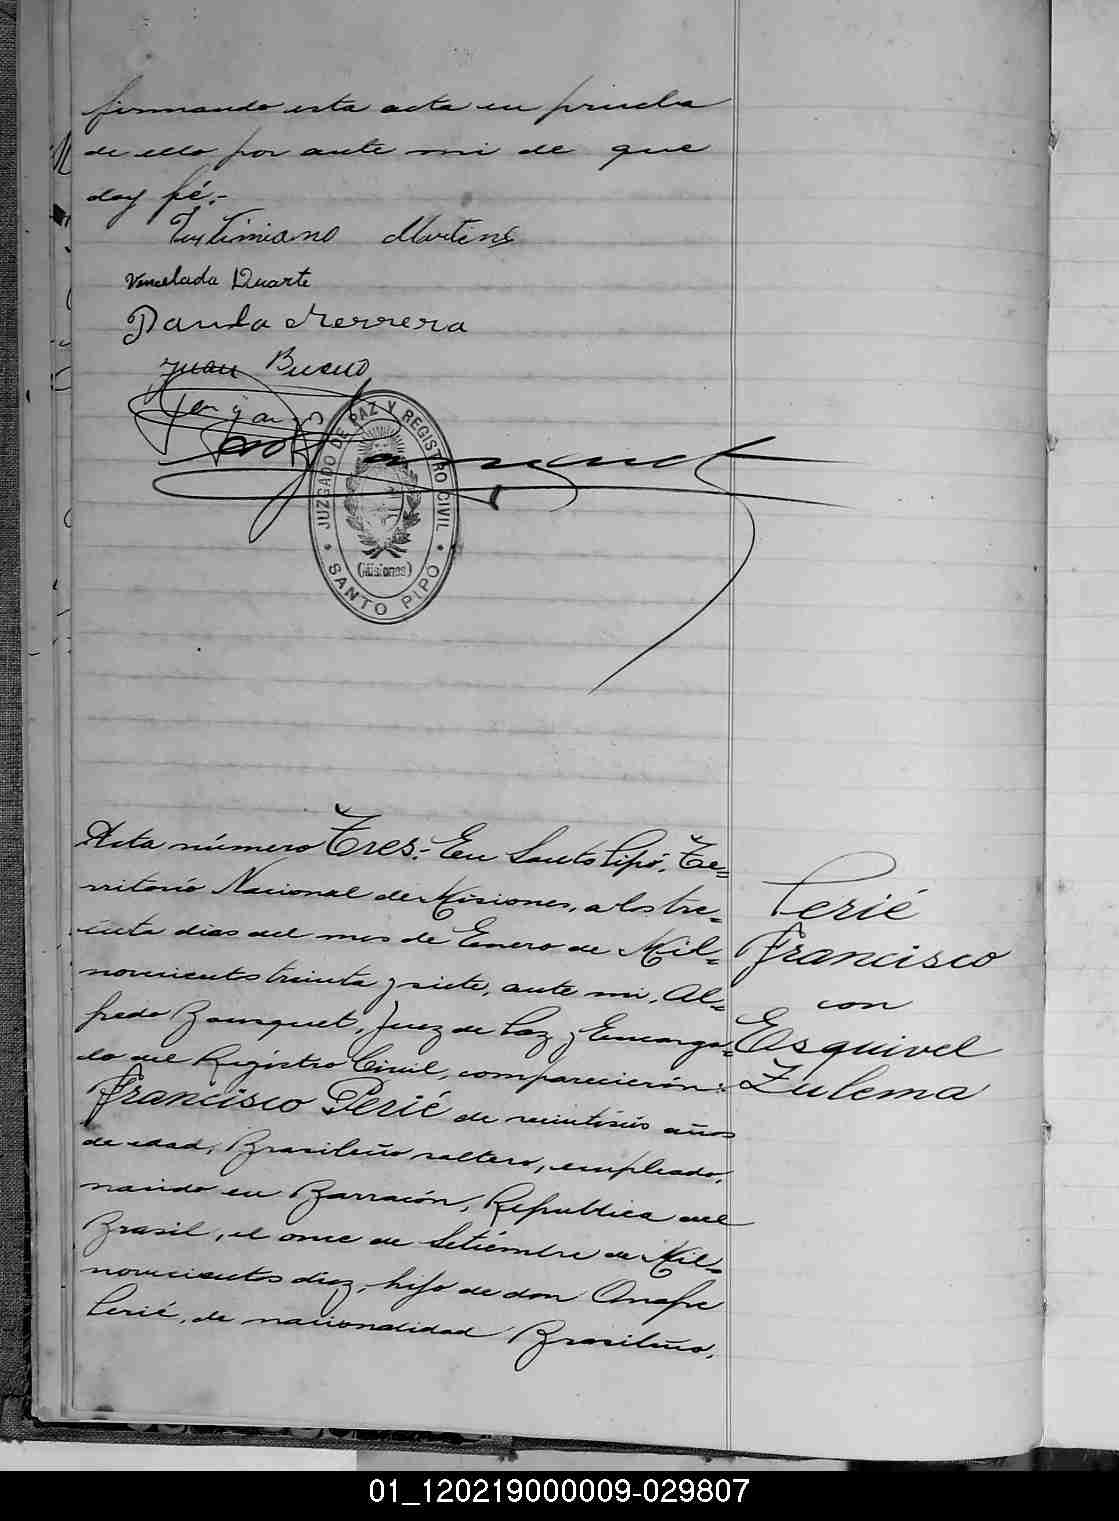 firmando esta acta en prueba
de ello por ante mi de que
doy fé.-
Martins
Vencelada Duarte
Paula Herrera
Juan Bueno
JUZGADO DE PAZ Y REGISTRO CIVIL
(Misiones)
SANTO PIPO
Acta número Tres:- En Santo Pipó, Te=
rritorio Nacional de Misiones, a los tre=
inta dias del mes de Enero de Mil=
novecientos treinta y siete, ante mi, Al=
fredo Bourquet, Juez de Paz y Encarga=
do del Registro Civil, comparecierón:
Francisco Perié de veintiseis años
de edad, Brasileño soltero, empleado,
nacido en Barracón, Republica del
Brasil, el once de Setiembre de Mil=
novecientos diez, hijo de don Onofre
Perié, de nacionalidad Brasileño,
Perié
Francisco
con
Esquivel
Zulema
01_120219000009-029807